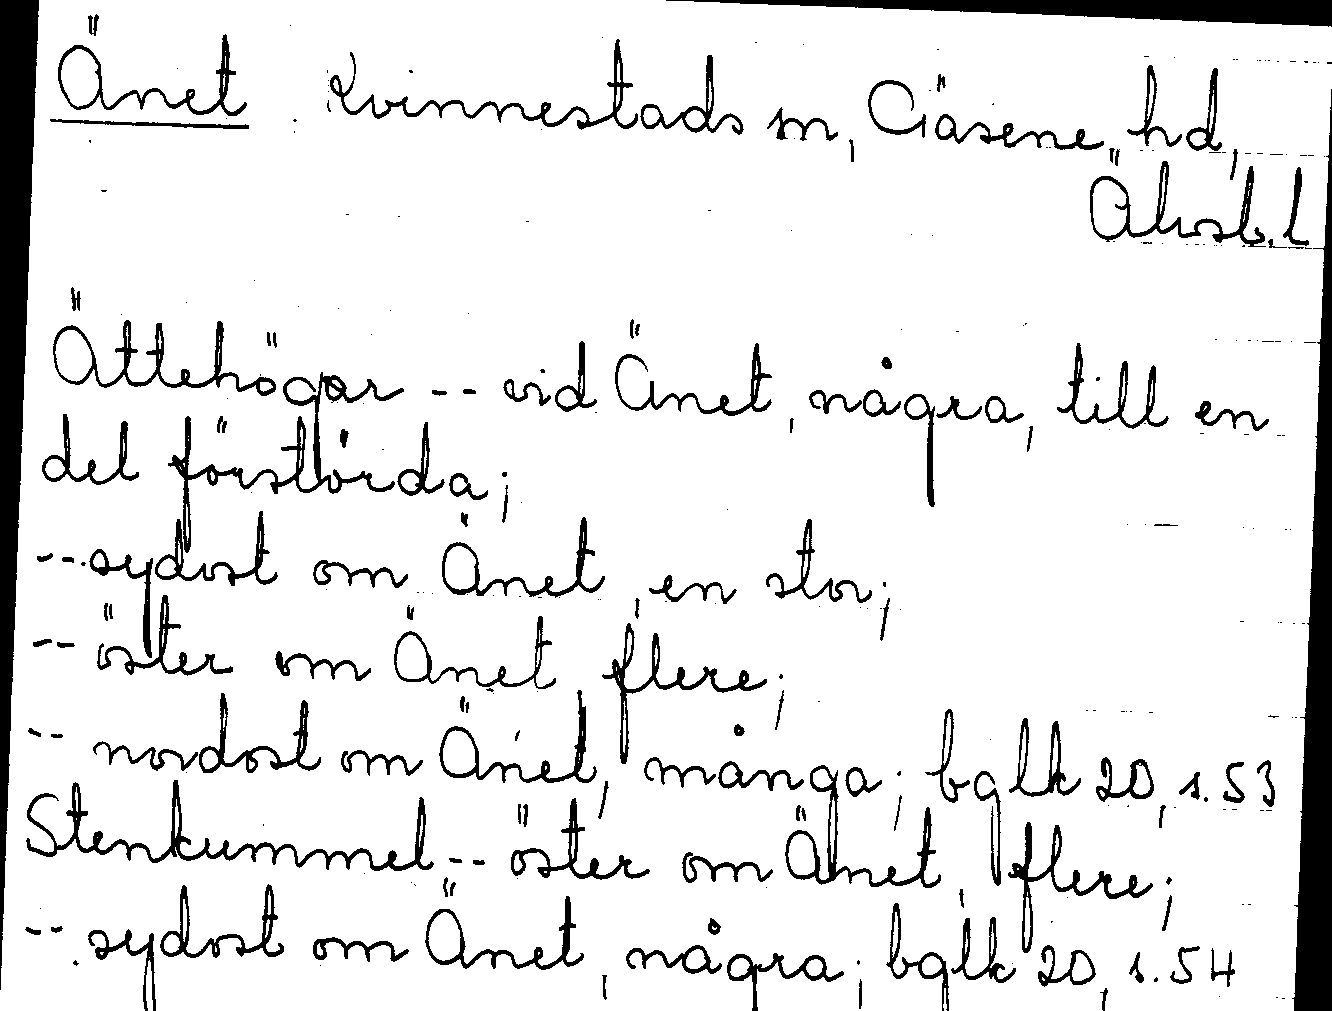 Änet Kvinnestads sn, Gäsene hd,
Älvsb.l
Ättehögar -- vid Änet, några, till en
del förstörda;
-- sydost om Änet, en stor;
-- öster om Änet, flere;
-- nordost om Änet, många; bglk 20, s. 53
Stenkummel -- öster om Änet, flere;
-- sydost om Änet, några; bglk 20, s. 54